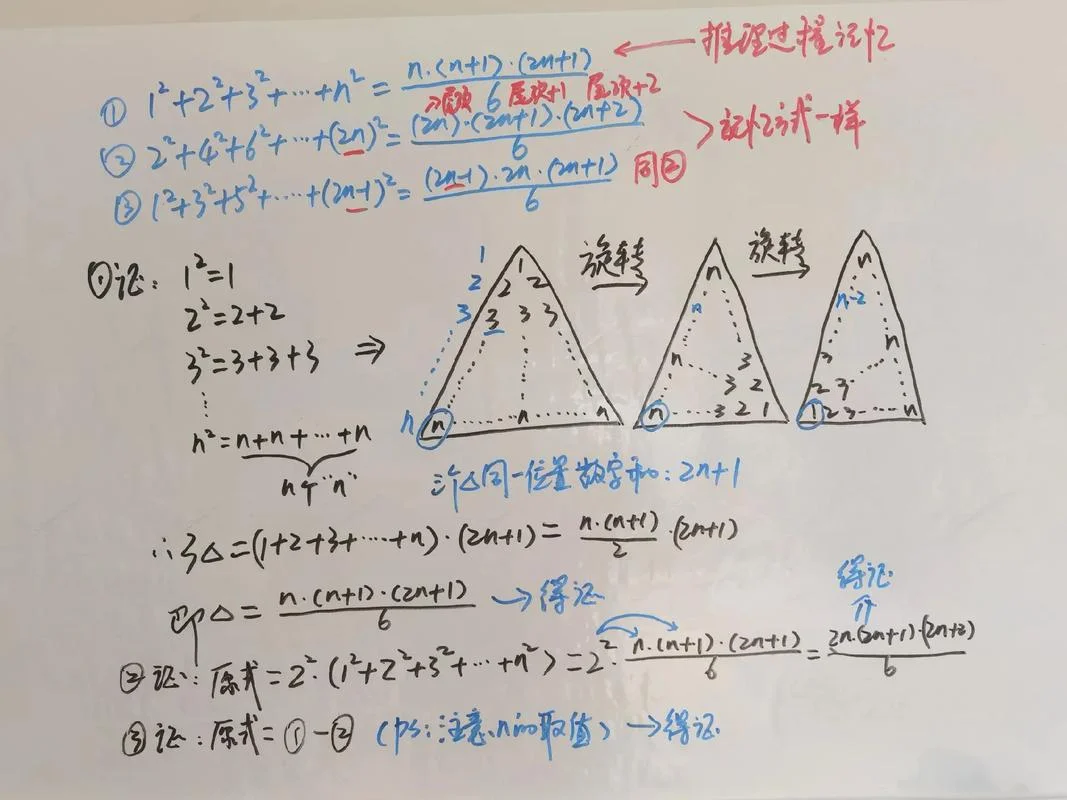 ① 1²+2²+3²+⋯+n²=n·(n+1)·(2n+1)/6 ← 推理过程记忆
尾项 尾项+1 尾项+2
② 2²+4²+6²+⋯+(2n)²=(2n)·(2n+1)·(2n+2)/6 > 记忆方式一样
③ 1²+3²+5²+⋯+(2n-1)²=(2n-1)·2n·(2n+1)/6 同②
①证: 1²=1
2²=2+2
3²=3+3+3 ⇒
⋮
n²=n+n+⋯+n
n个"n"
1
2
3
n
1
2 2
3 3 3
n ⋯ n ⋯ n
旋转
n
n
n 3
3 2
n ⋯ 3 2 1
旋转
n
n-2
n
3
2 3
1 2 3 ⋯ n
三个△同一位置数字和: 2n+1
∴3△=(1+2+3+⋯+n)·(2n+1)=n·(n+1)/2·(2n+1)
即△=n·(n+1)·(2n+1)/6 → 得证
②证: 原式=2²·(1²+2²+3²+⋯+n²)=2²·n·(n+1)·(2n+1)/6=2n·(2n+1)·(2n+2)/6 ⇒ 得证
③证: 原式=①-② (ps:注意n的取值) → 得证